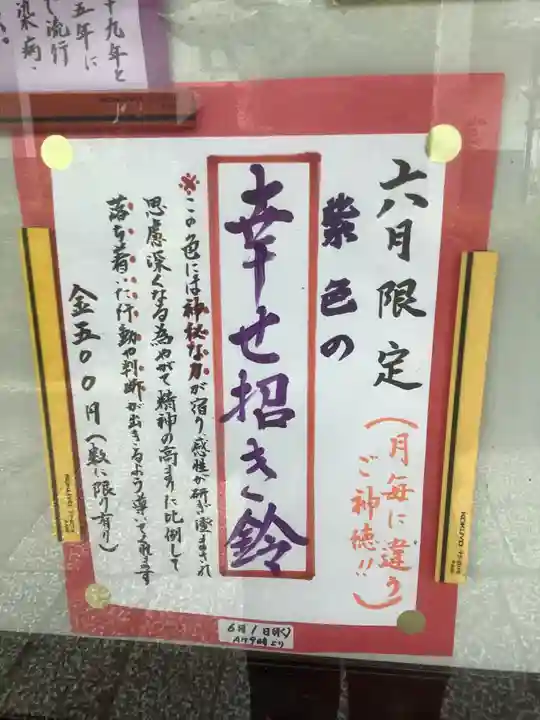 六月限定
(月毎に違う
ご神徳!!)
紫色の
幸せ招き鈴
※この色には神秘な力が宿り感性が研ぎ澄まされ
思慮深くなる為やがて精神の高まりに比例して
落ち着いた行動や判断が出きるよう導いてくれます
金五〇〇円(数に限り有り)
6月1日(水)
AM9時より
十九年と
五年に
し流行
染病
KOKUYO
KOKUYO